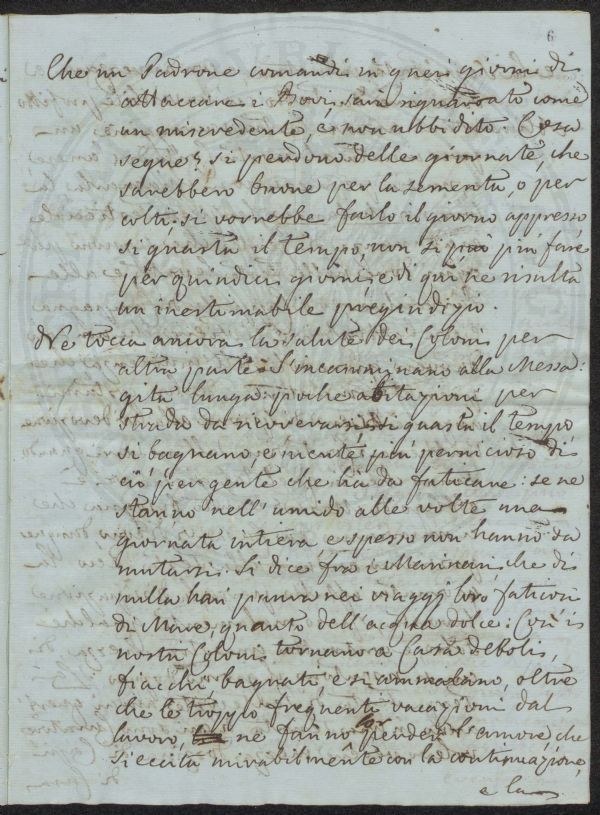 6
Che un Padrone comandi in quei giorni di
attaccare i Bovi, sarà riguardato come
un miscredente, e non ubbidito. Cosa
segue? si perdono delle giornate, che
sarebbero buone per la sementa, o per
colti, si vorrebbe farlo il giorno appresso
si guasta il tempo, non si può più fare
per quindici giorni, e di qui ne risulta
un inestimabile pregiudizio.
Ne tocca ancora la salute dei Coloni per
altra parte. S'incamminano alla Messa:
gita lunga: poche abitazioni per
strada da ricoverarsi: si guasta il tempo
si bagnano, e niente più pernicioso di
ciò per gente che ha da faticare: se ne
stanno nell'umido alle volte una
giornata intiera e spesso non hanno da
mutarsi. Si dice fra i Marinari, che di
nulla han paura nei viaggi loro faticosi
di Mare, quanto dell'acqua dolce: Così i
nostri Coloni tornano a Casa deboli,
fiacchi, bagnati, e si ammalano, oltre
che le troppo frequenti vacazioni dal
lavoro, ne fanno lor perder l'amore che
si eccita mirabilmente con la continuazione,
e la